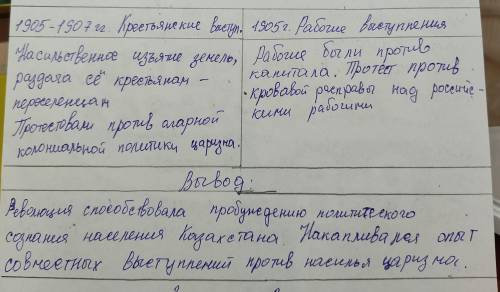 1905-1907 гг. Крестьянские выступ.
Насильственное изъятие земель,
раздача её крестьянам -
переселенцам
Протестовали против аграрной
колониальной политики царизма.
1905 г. Рабочие выступления
Рабочие были против
капитала. Протест против
кровавой расправы над россий-
скими рабочими
Вывод:
Революция способствовала пробуждению политического
сознания населения Казахстана. Накапливался опыт
совместных выступлений против насилья царизма.